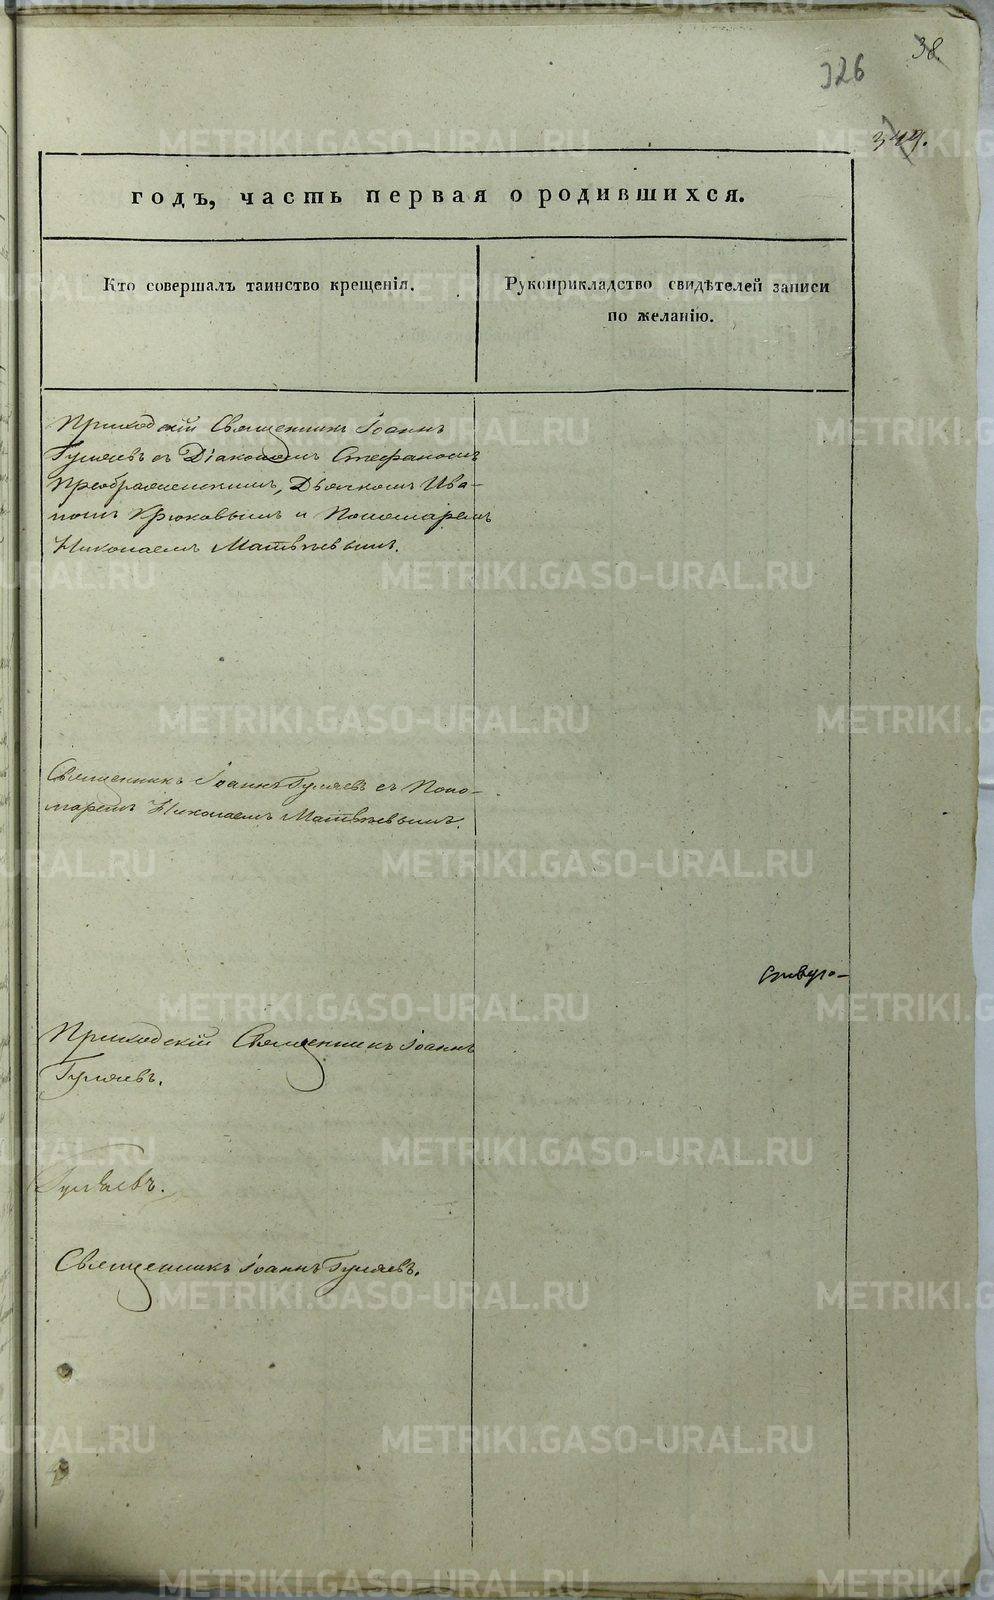 38.
326
349.
годъ, часть первая о родившихся.
Кто совершалъ таинство крещенія.
Рукоприкладство свидѣтелей записи
по желанію.
Приходскій Священникъ Іоаннъ
Гуляевъ съ Діакономъ Стефаномъ
Преображенскимъ, Дьячкомъ Ива-
номъ Крюковымъ и Пономаремъ
Николаемъ Матвѣевымъ.
Священникъ Іоаннъ Гуляевъ съ Поно-
маремъ Николаемъ Матвѣевымъ.
Приходскій Священникъ Іоаннъ
Гуляевъ.
Гуляевъ.
Священникъ Іоаннъ Гуляевъ.
METRIKI.GASO-URAL.RU